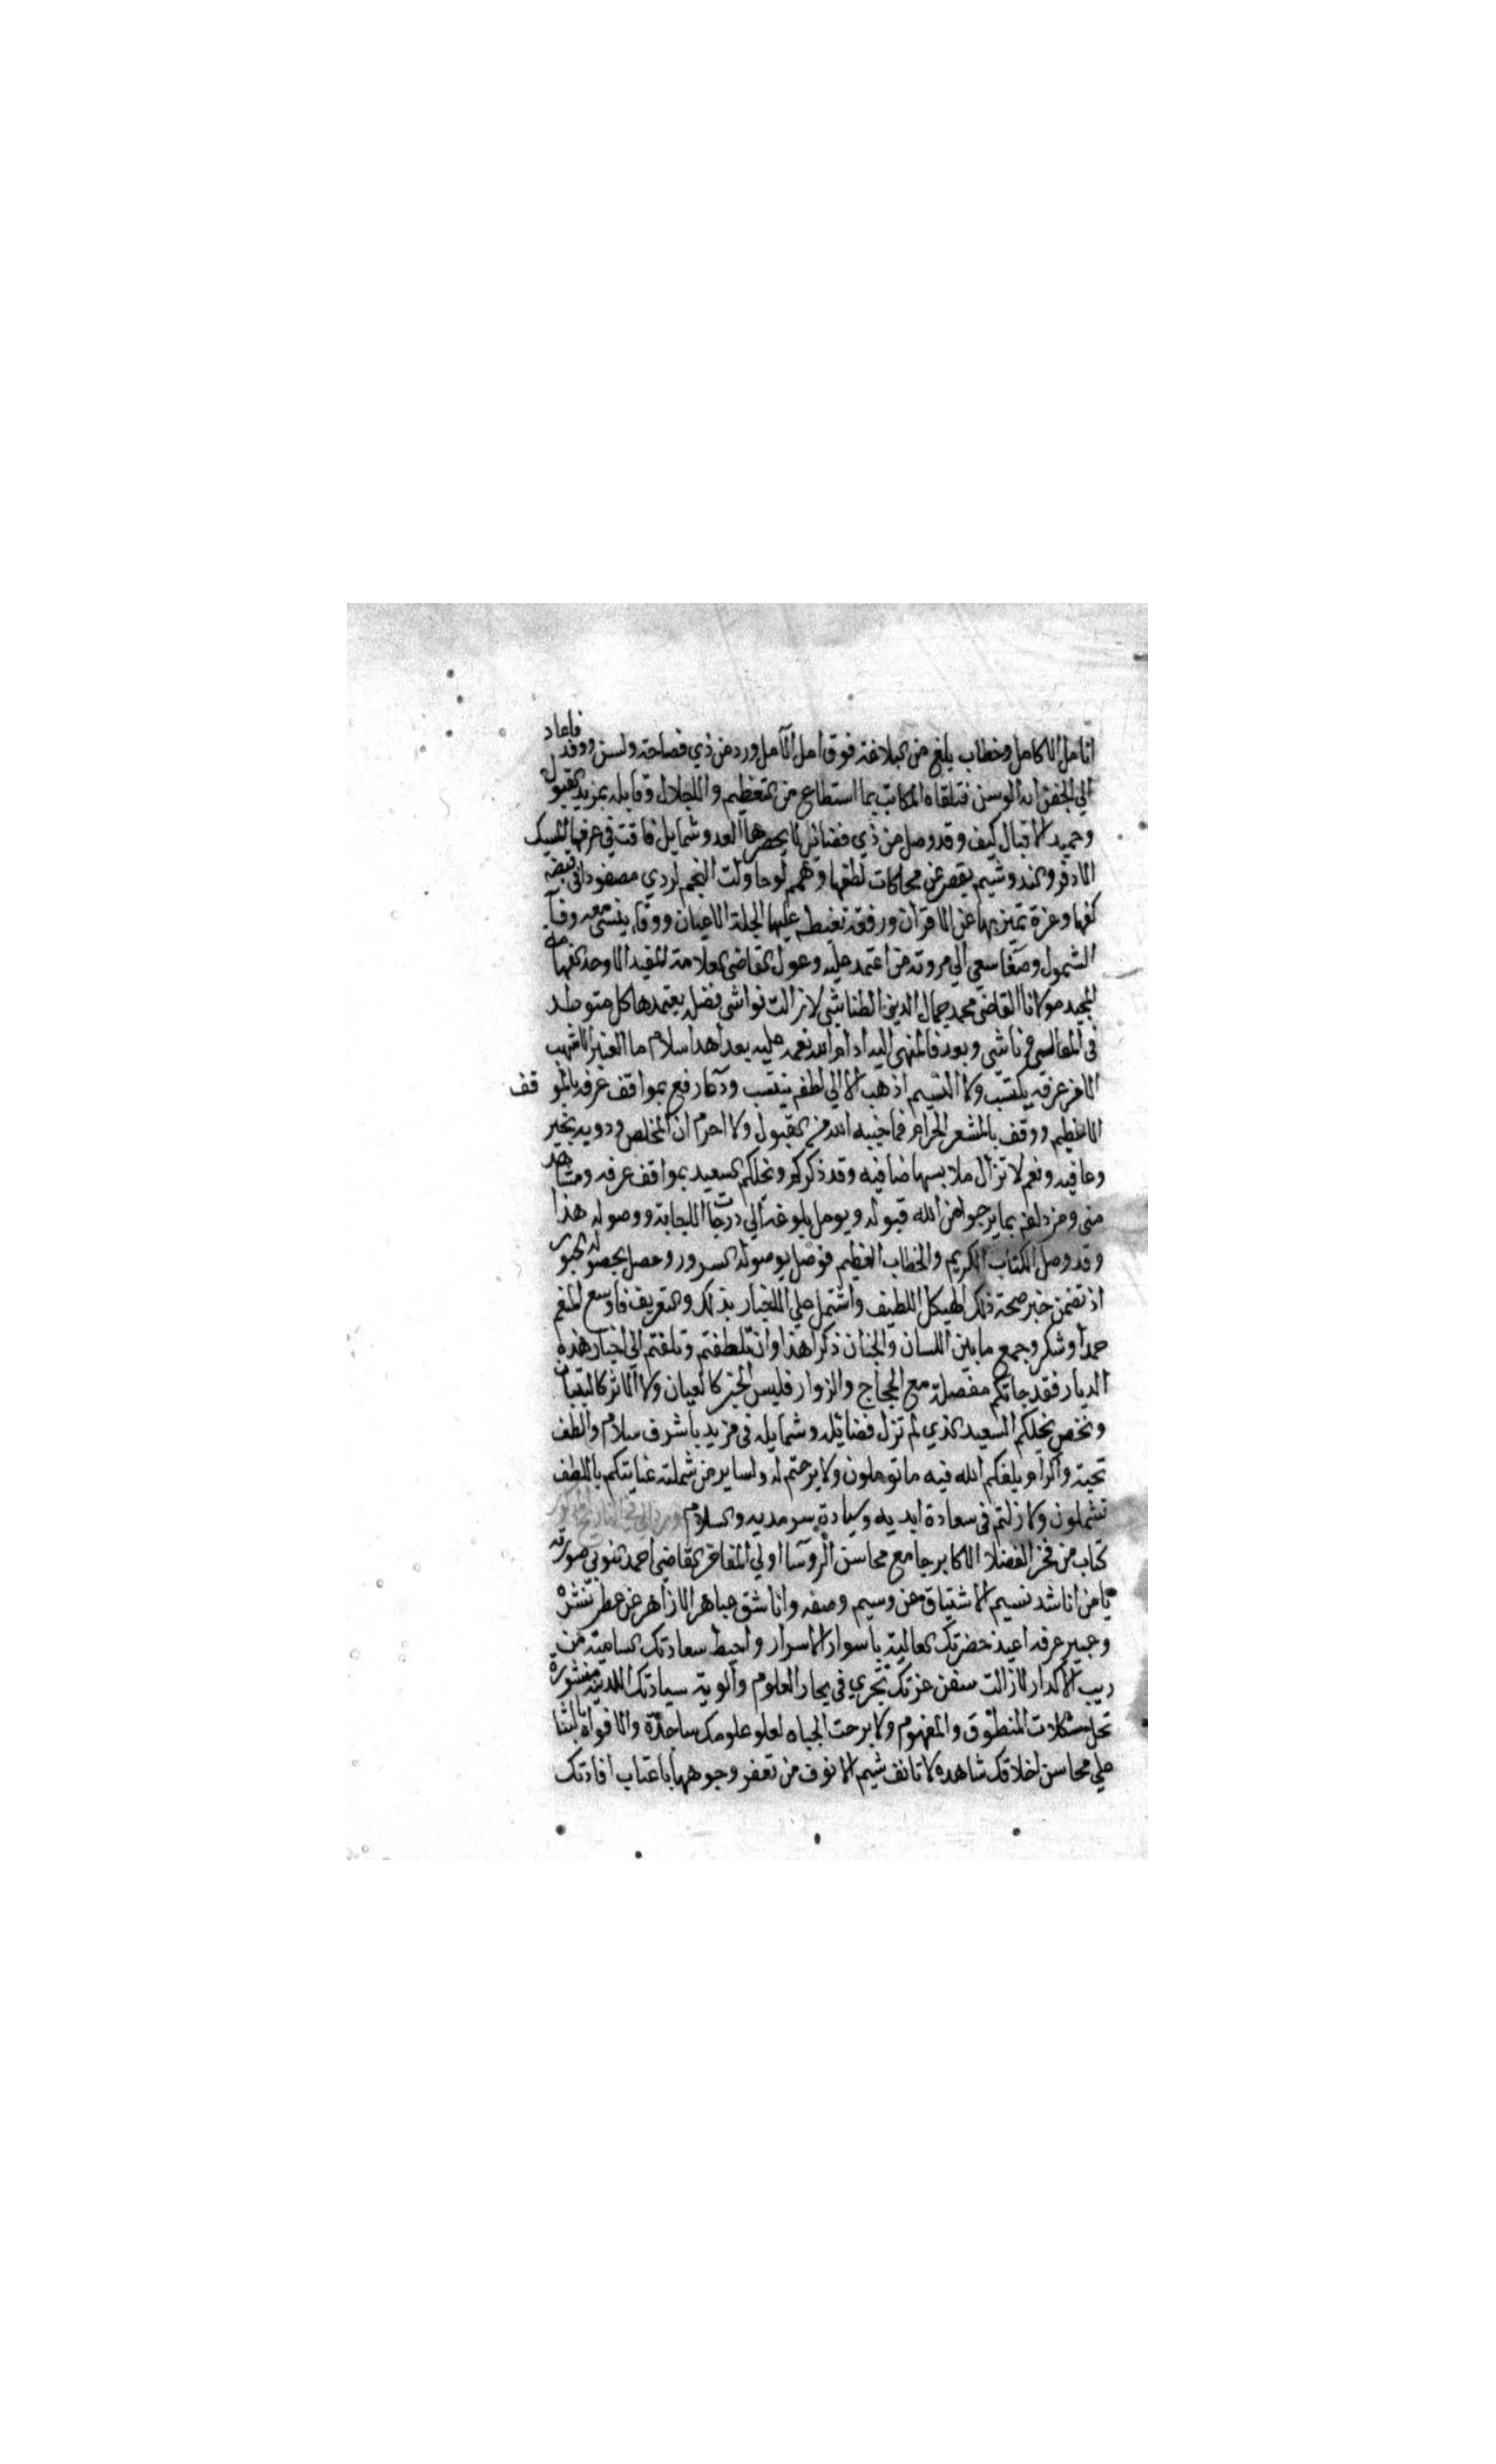 انامل الاكامل وخطاب بلغ من البلاغة فوق امل الآمل ورد من ذي فصاحة ولسن ووفد فاعاد
الي الجفن الوسن فتلقاه المكاتب بما استطاع من التعظيم والاجلال وقابله بمزيد القبول
وحميد الاقبال كيف وقد وصل من ذي فضائل لا يحصرها العد وشمايل فاقت في عرفها المسك
الادفر والند وشيم يقصر عن محاكات لطفها وهمم لو حاولت النجم لردي مصفودا في قبضه
كفها وعزة تميز بها عن الاقران ورفقة تغبطه عليها الجلة الاعيان ووفاء
الشمول وصفا سعي الي مروته من اعتمد عليه وعول القاضي العلامة المفيد الاوحد الفهامه
المجيد مولانا القاضي محمد جمال الدين الطناشي لا زالت نواشي فضله يعتمدها كل متوطد
في المعالي وناشي وبعد فالمنهي اليه ادام الله نعمه عليه بعد اهدا سلام ما العنبر الاشهب
الا من عرفه يكتسب ولا النسيم اذ هب الا الي لطفه ينتسب ودعا رفع بمواقف عرفه بالموقف
الاعظيم ووقف بالمشعر الحرام فما خيبه الله من القبول ولا احرم ان المخلص وذويه بخير
وعافيه ونعم لا تزال ملابسها ضافيه وقد ذكركم ونجلكم السعيد بمواقف عرفه ومشاهد
منى ومزدلفه بما يرجوا من الله قبوله ويومل بلوغه الي درجات الاجابة ووصوله هذا
وقد وصل الكتاب الكريم والخطاب العظيم فوصل بوصوله السرور وحصل بحصوله الحبور
اذ تضمن خبر صحة ذلك الهيكل اللطيف واشتمل علي الاخبار بذلك والتعريف فاوسع المنعم
حمدا وشكر وجمع ما بين اللسان والجنان ذكرا هذا وان تلطفتم وتلفتم الي اخبار هذه
الديار فقد جاتكم مفصلة مع الحجاج والزوار فليس الخبر كالعيان ولا الاثر كالبتيان
ونخص نجلكم السعيد الذي لم تزل فضايله وشمايله في مزيد باشرف سلام والطف
تحية واكرام بلغكم الله فيه ما توملون ولا برحتم له ولساير من شملته عنايتكم باللطف
تشملون ولا زلتم في سعادة ابديه وسيادة سرمديه والسلام
كتاب من فخر الفضلا الاكابر جامع محاسن الروسا اولي المفاخر القاضي احمد صورته
يا من اناشد نسيم الاشتياق عن وسيم وصفه واناشق عباهر الازاهر عن عطر نشره
وعبير عرفه اعيذ حضرتك العالية باسوار الاسرار واحيط سعادتك السامية من
ريب الاكدار لا زالت سفن عزتك تجري في بحار العلوم والوية سيادتك منشوره
تحل مشكلات المنطوق والمفهوم ولا برحت الجباه لعلو علومك ساجدة والافواه بالثنا
علي محاسن اخلاقك شاهده لا تانف شيم الانوف من تعفر وجوهها باعتاب افادتك